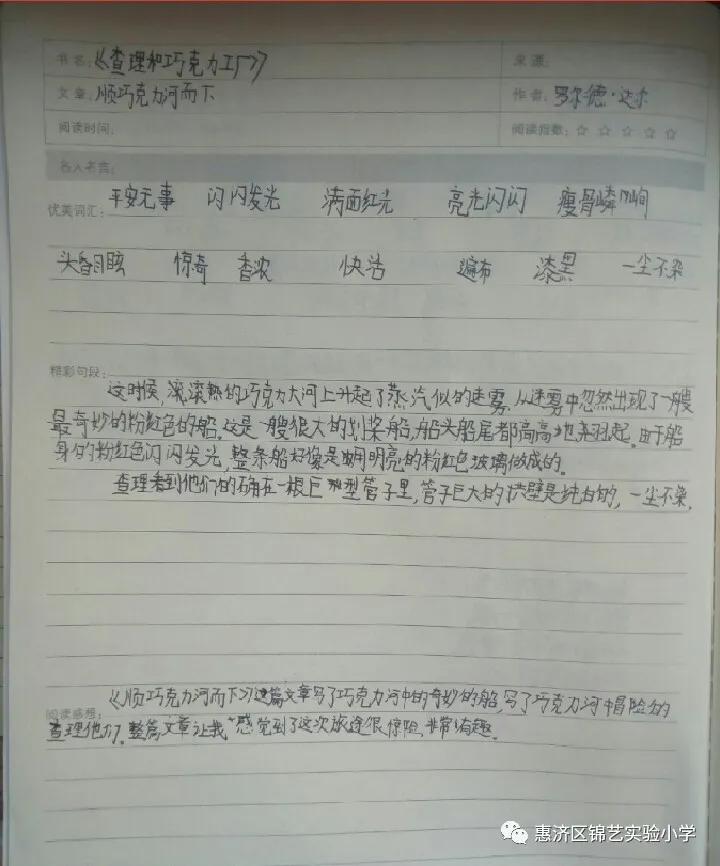 书名:《查理和巧克力工厂》 来源:
文章:顺巧克力河而下 作者:罗尔德·达尔
阅读时间: 阅读指数:☆ ☆ ☆ ☆ ☆
名人名言:
优美词汇:平安无事 闪闪发光 满面红光 亮光闪闪 瘦骨嶙峋
头昏目眩 惊奇 香浓 快活 遍布 漆黑 一尘不染
精彩句段:
这时候,滚滚热的巧克力大河上升起了蒸汽似的迷雾.从迷雾中忽然出现了一艘
最奇妙的粉红色的船.这是一艘很大的划桨船,船头船尾都高高地翘起.由于船
身的粉红色闪闪发光,整条船好像是用明亮的粉红色玻璃做成的.
查理看到他们的确在一根巨型管子里,管子巨大的拱壁是纯白的,一尘不染,
《顺巧克力河而下》这篇文章写了巧克力河中的奇妙的船,写了巧克力河中冒险的
阅读感想:
查理他们.整篇文章让我感觉到了这次旅途很惊险,非常有趣.
惠济区锦艺实验小学